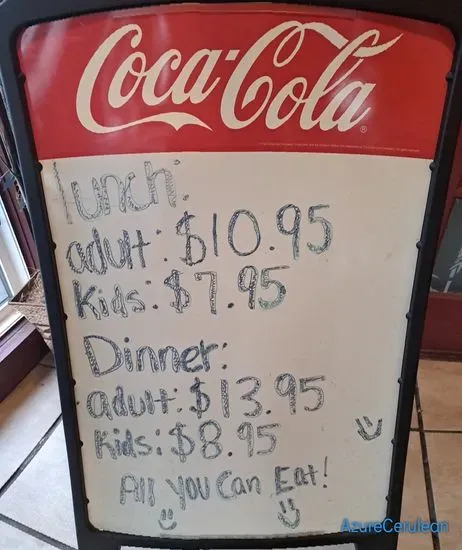 Coca-Cola
lunch:
adult: $10.95
Kids: $7.95
Dinner:
adult: $13.95
Kids: $8.95
All You Can Eat!
AzureCerulean